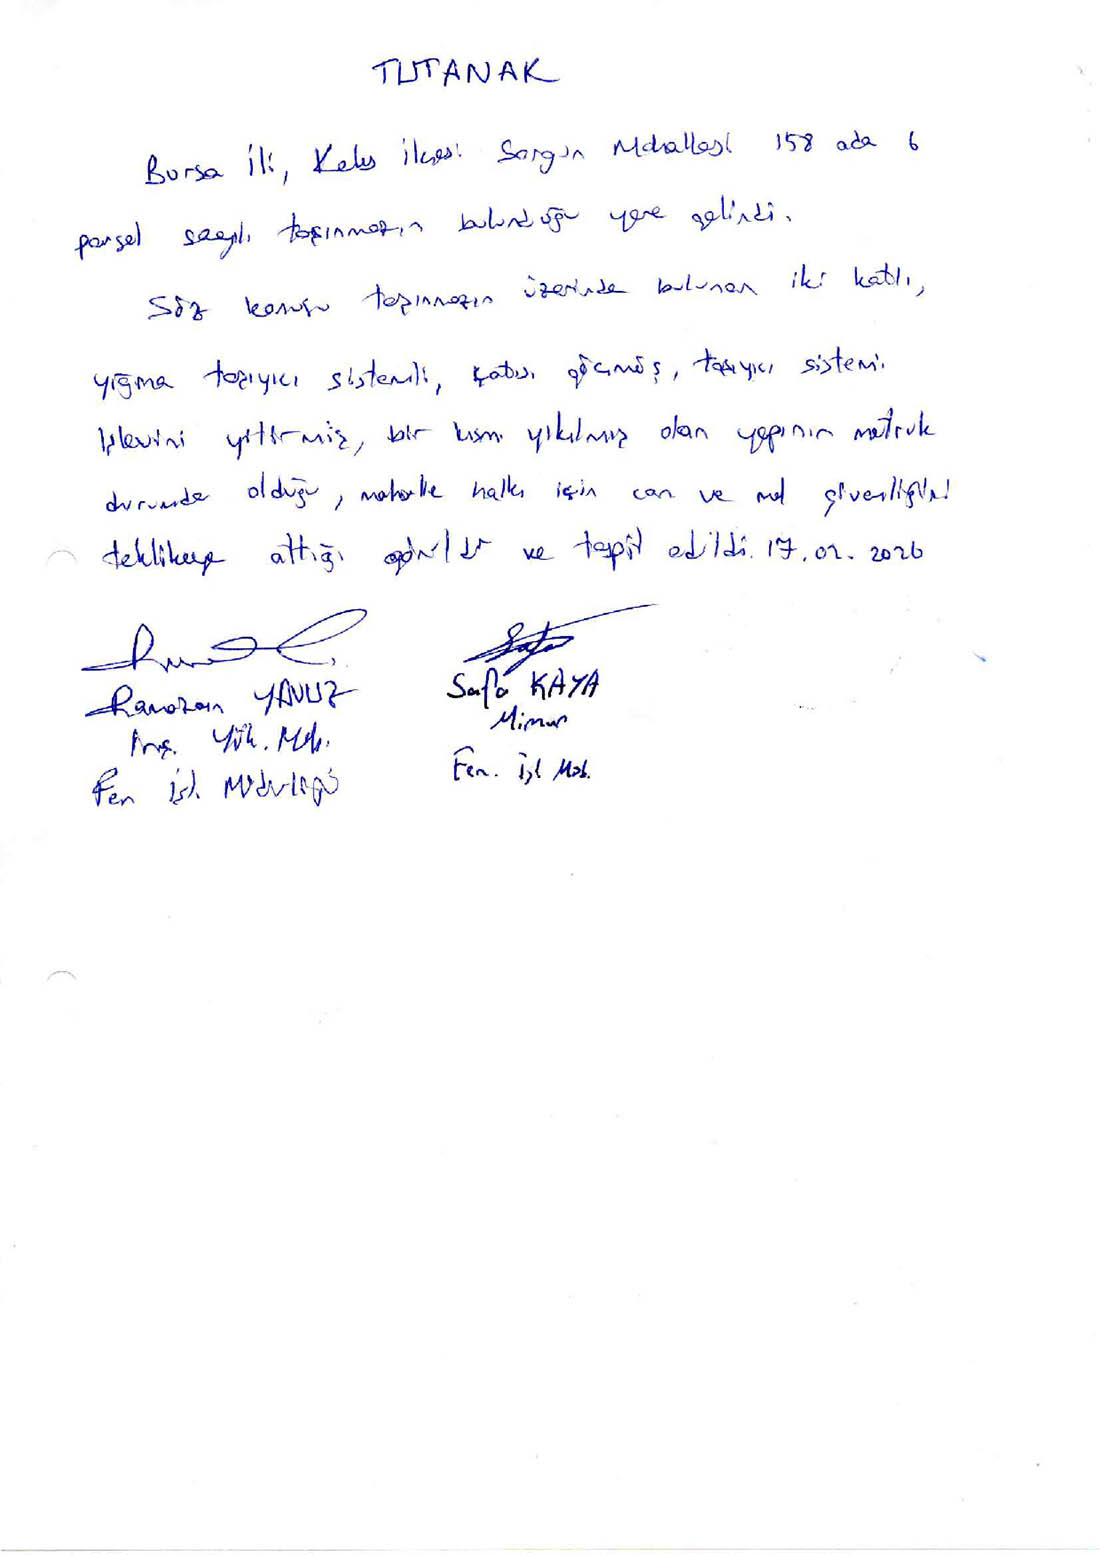 TUTANAK
Bursa İli, Keles İlçesi Sorgun Mahallesi 158 ada 6
parsel sayılı taşınmazın bulunduğu yere gelindi.
Söz konusu taşınmazın üzerinde bulunan iki katlı,
yığma taşıyıcı sistemli, çatısı göçmüş, taşıyıcı sistemi
işlevini yitirmiş, bir kısmı yıkılmış olan yapının metruk
durumda olduğu, mahalle halkı için can ve mal güvenliğini
tehlikeye attığı görüldü ve tespit edildi. 17.02.2026
Ramazan YAVUZ
İnş. Yük. Müh.
Fen İşl. Müdürlüğü
Safa KAYA
Mimar
Fen. İşl Müd.